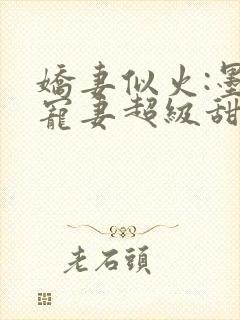 嬌妻似火:墨
寵妻超級甜
老石頭